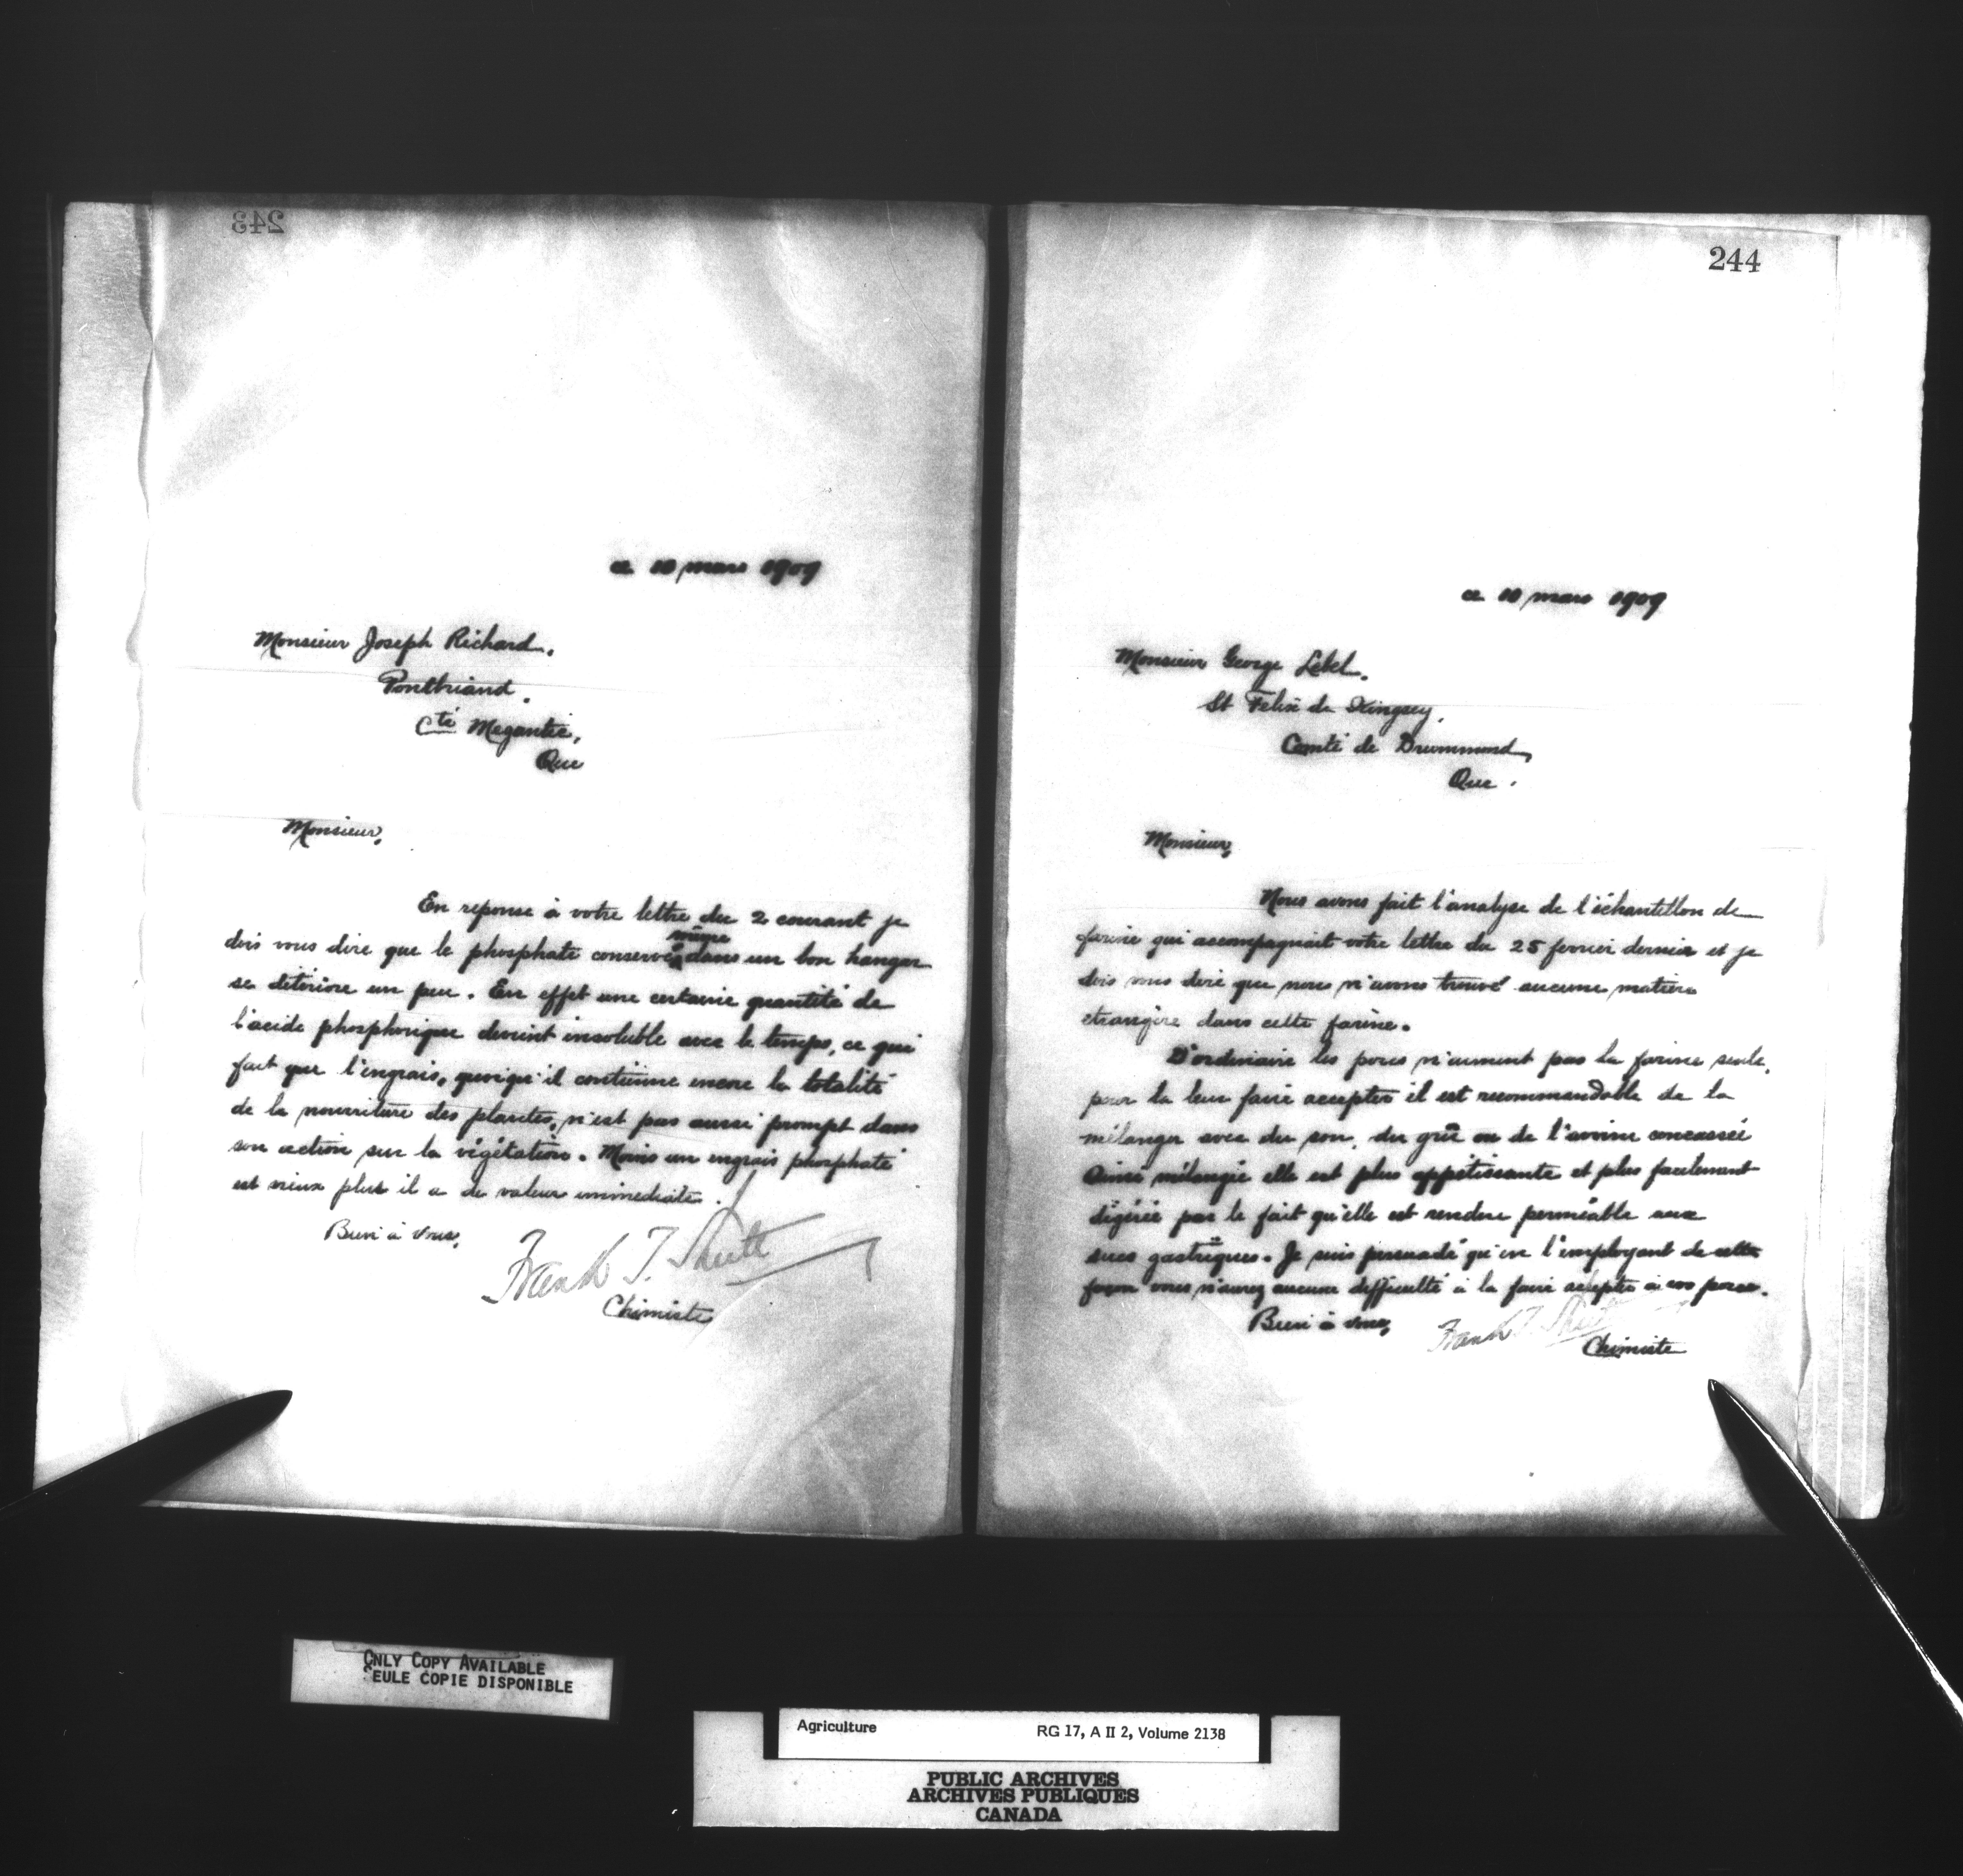 243
ce 10 mars 1909
Monsieur Joseph Richard.
Pontbriand.
Cté Megantic,
Que
Monsieur,
En reponse à votre lettre du 2 courant je
dois vous dire que le phosphate conservé même dans un bon hangar
se détériore un peu. En effet une certaine quantité de
l'acide phosphorique devient insoluble avec le temps, ce qui
fait que l'engrais, quoiqu'il contienne encore la totalité
de la nourriture des plantes, n'est pas aussi prompt dans
son action sur la végétation. Moins un engrais phosphaté
est vieux plus il a de valeur immediate.
Bien à vous,
Frank T. Shutt
Chimiste
244
ce 10 mars 1909
Monsieur George Lebel.
St Felix de Kingsey,
Comté de Drummond,
Que.
Monsieur,
Nous avons fait l'analyse de l'échantillon de
farine qui accompagnait votre lettre du 25 fevrier dernier et je
dois vous dire que nous n'avons trouvé aucune matière
etrangère dans cette farine.
D'ordinaire les porcs n'aiment pas la farine seule,
pour la leur faire accepter il est recommandable de la
mélanger avec du son, du grû ou de l'avoine concassée
Ainsi mélangée elle est plus appétissante et plus facilement
digérée par le fait qu'elle est rendue perméable aux
sucs gastriques. Je suis persuadé qu'en l'employant de cette
façon vous n'aurez aucune difficulté à la faire accepter à vos porcs.
Bien à vous,
Frank T. Shutt
Chimiste
ONLY COPY AVAILABLE
SEULE COPIE DISPONIBLE
Agriculture RG 17, A II 2, Volume 2138
PUBLIC ARCHIVES
ARCHIVES PUBLIQUES
CANADA